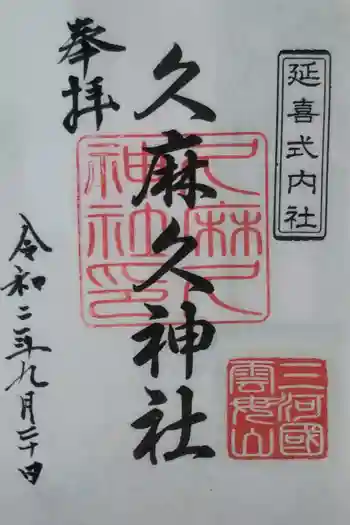 延喜式内社
奉拝
久麻久神社
久麻久
神社印
三河國
雲母山
令和二年九月二十日